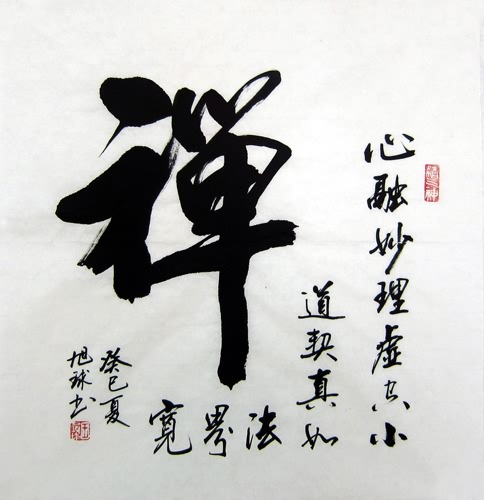 禪
心融妙理虛空小
道契真如
法界寬
癸巳夏
旭球书